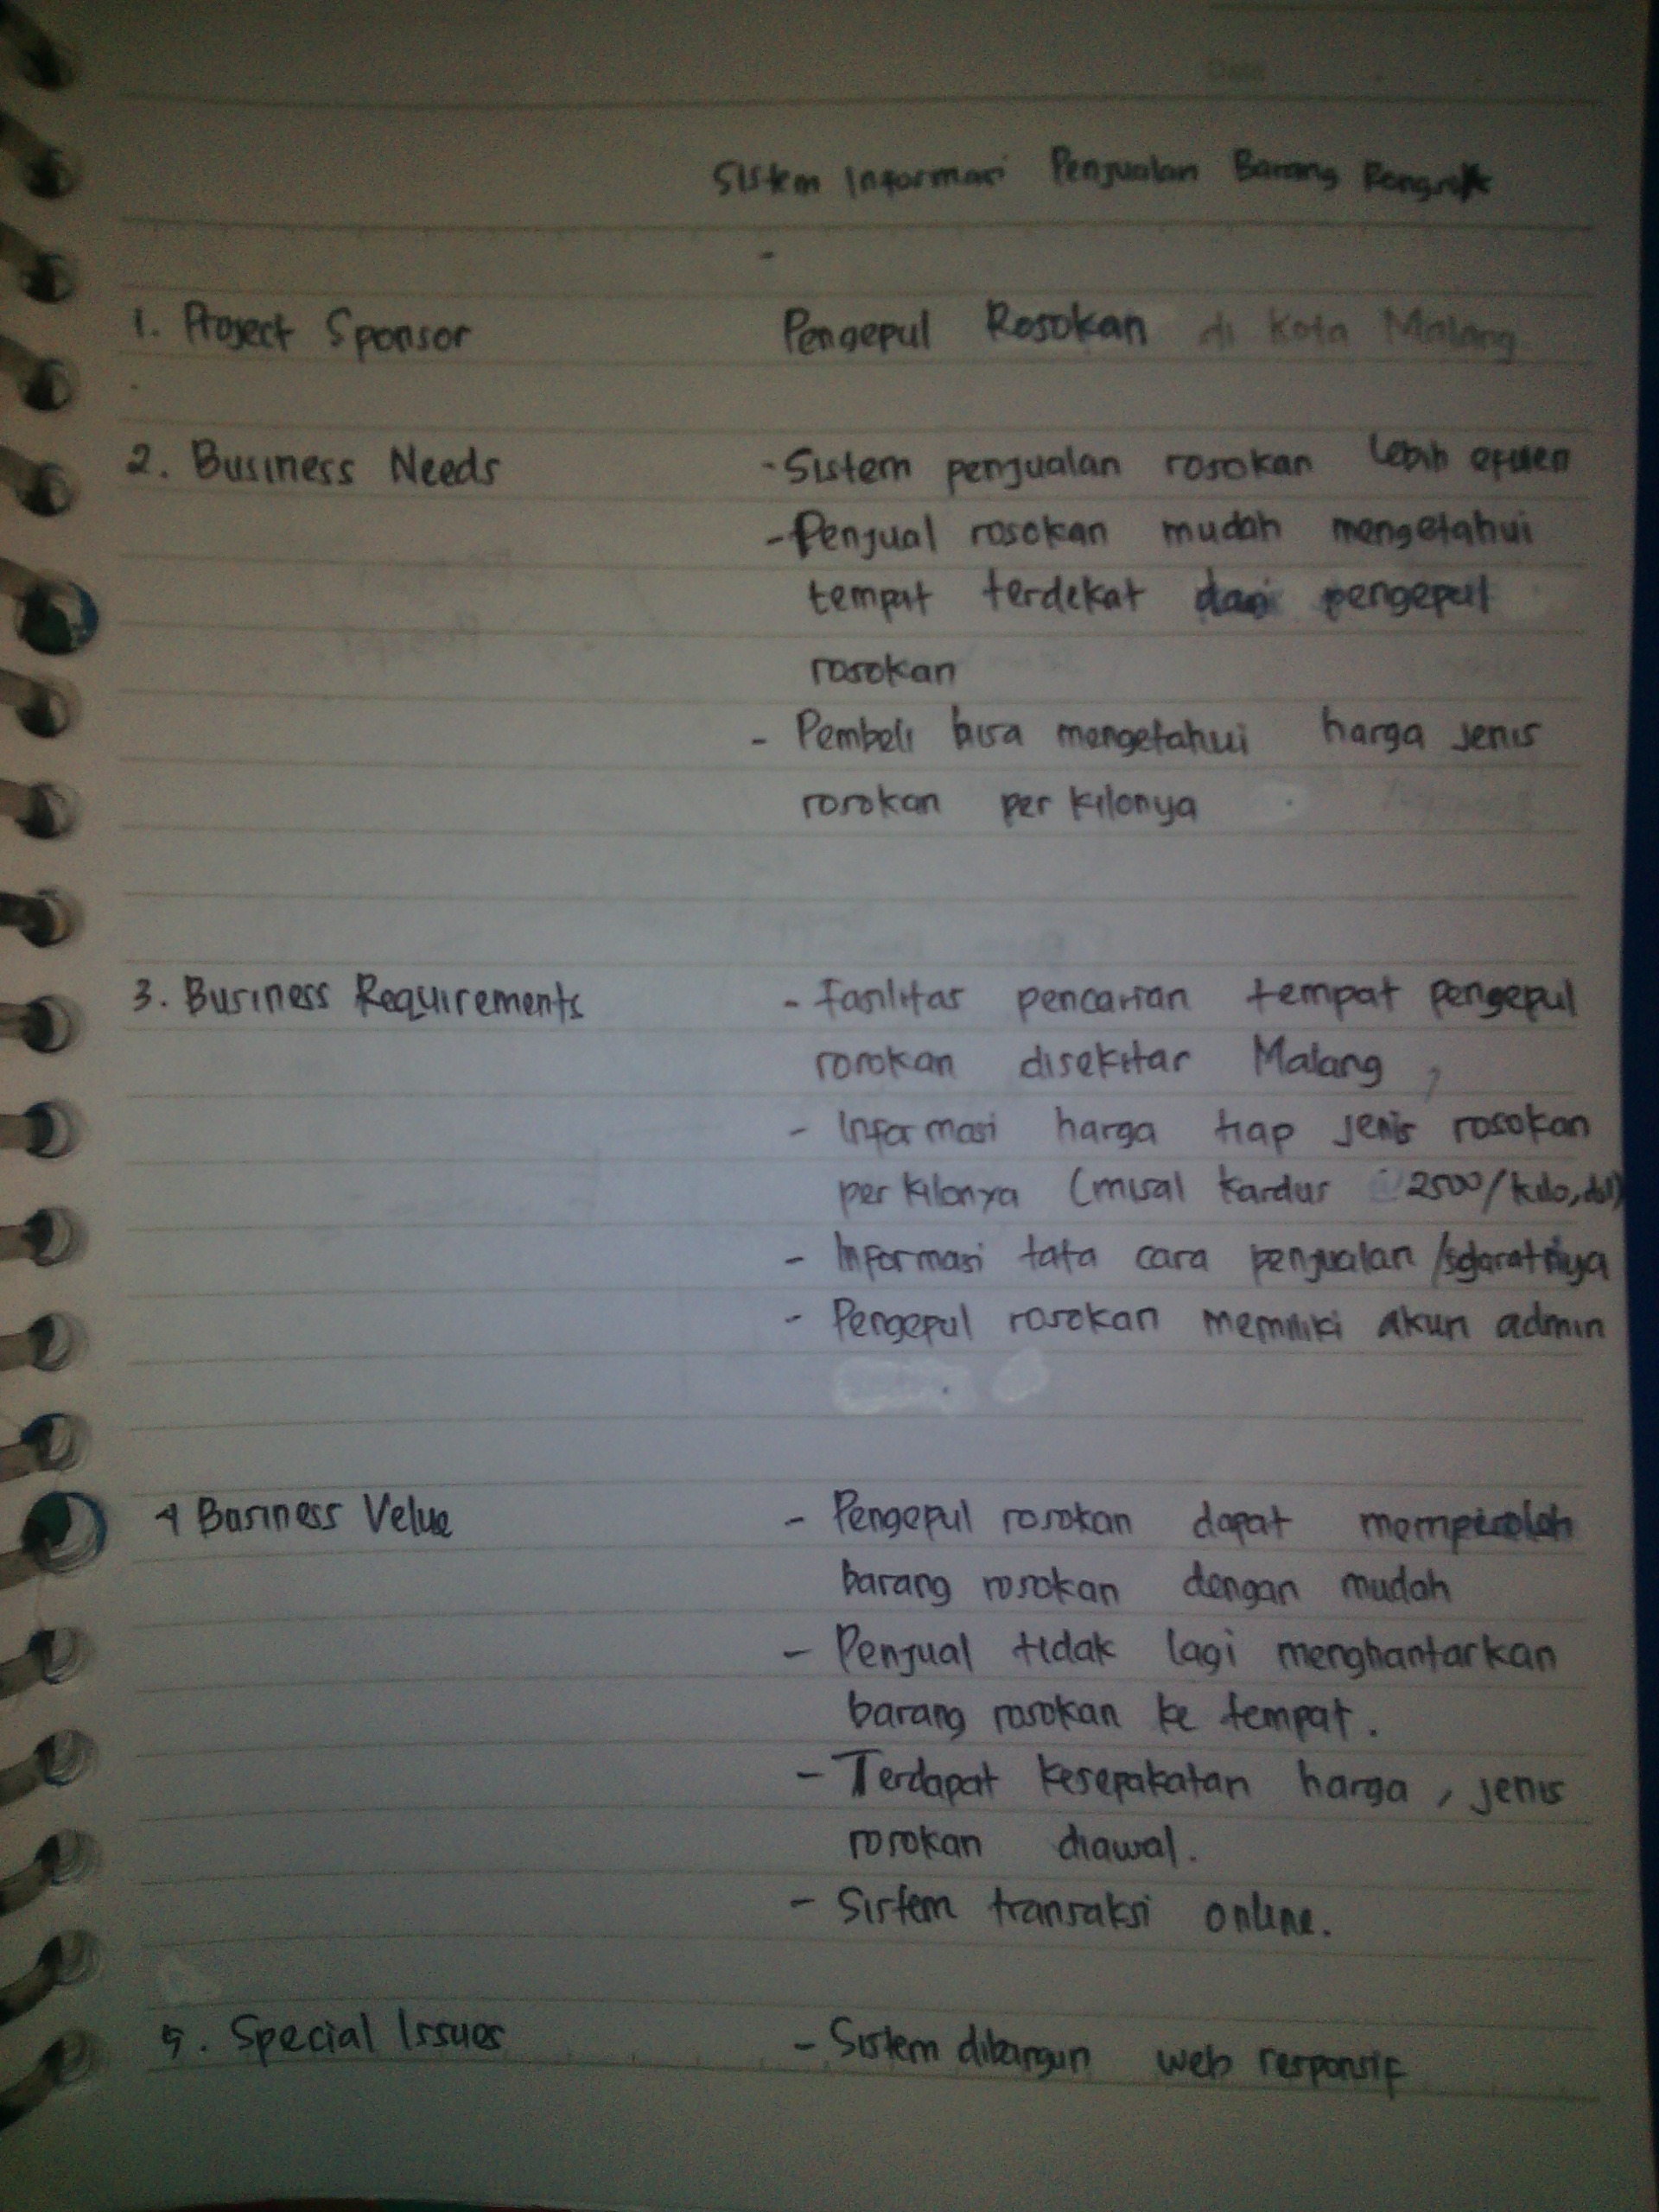 Date
Sistem Informasi Penjualan Barang Rongsok
1. Project Sponsor Pengepul Rosokan di Kota Malang
2. Business Needs - Sistem penjualan rosokan lebih efisien
- Penjual rosokan mudah mengetahui
tempat terdekat dari pengepul
rosokan
- Pembeli bisa mengetahui harga jenis
rosokan per kilonya
3. Business Requirements - Fasilitas pencarian tempat pengepul
rosokan disekitar Malang,
- Informasi harga tiap jenis rosokan
per kilonya (misal kardus 2500/kilo, dll)
- Informasi tata cara penjualan /syaratnya
- Pengepul rosokan memiliki akun admin
4 Business Velue - Pengepul rosokan dapat memperoleh
barang rosokan dengan mudah
- Penjual tidak lagi menghantarkan
barang rosokan ke tempat.
- Terdapat kesepakatan harga, jenis
rosokan diawal.
- Sistem transaksi online.
5. Special Issues - Sistem dibangun web responsif